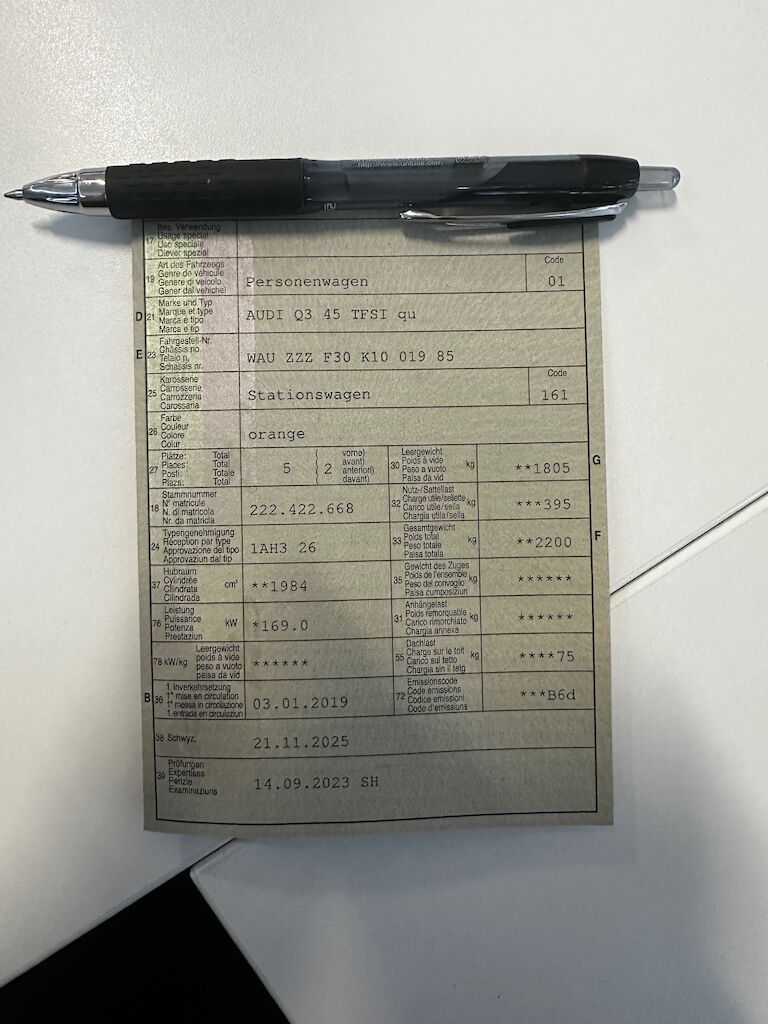 http://www.uniball.com
17 Bes. Verwendung
Usage spécial
Uso speciale
Diever spezial
19 Art des Fahrzeugs
Genre de véhicule
Genere di veicolo
Gener dal vehichel
Personenwagen
Code
01
D 21 Marke und Typ
Marque et type
Marca e tipo
Marca e tip
AUDI Q3 45 TFSI qu
E 23 Fahrgestell-Nr.
Châssis no
Telaio n.
Schassis nr.
WAU ZZZ F30 K10 019 85
25 Karosserie
Carrosserie
Carrozzeria
Carossaria
Stationswagen
Code
161
26 Farbe
Couleur
Colore
Colur
orange
27 Plätze: Total
Places: Total
Posti: Totale
Plazs: Total
5 2 vorne)
avant)
anteriori)
davant)
30 Leergewicht
Poids à vide
Peso a vuoto
Paisa da vid
kg
**1805
G
18 Stammnummer
N° matricule
N. di matricola
Nr. da matricla
222.422.668
32 Nutz-/Sattellast
Charge utile/sellette
Carico utile/sella
Chargia utila/sella
kg
***395
24 Typengenehmigung
Réception par type
Approvazione del tipo
Approvaziun dal tip
1AH3 26
33 Gesamtgewicht
Poids total
Peso totale
Paisa totala
kg
**2200
F
37 Hubraum
Cylindrée
Cilindrata
Cilindrada
cm³
**1984
35 Gewicht des Zuges
Poids de l'ensemble
Peso del convoglio
Paisa cumposiziun
kg
******
76 Leistung
Puissance
Potenza
Prestaziun
kW
*169.0
31 Anhängelast
Poids remorquable
Carico rimorchiato
Chargia annexa
kg
******
78 kW/kg Leergewicht
poids à vide
peso a vuoto
paisa da vid
******
55 Dachlast
Charge sur le toit
Carico sul tetto
Chargia sin il tetg
kg
****75
B 36 1. Inverkehrsetzung
1re mise en circulation
1a messa in circolazione
1. entrada en circulaziun
03.01.2019
72 Emissionscode
Code émissions
Codice emissioni
Code d'emissiuns
***B6d
38 Schwyz,
21.11.2025
39 Prüfungen
Expertises
Perizie
Examinaziuns
14.09.2023 SH